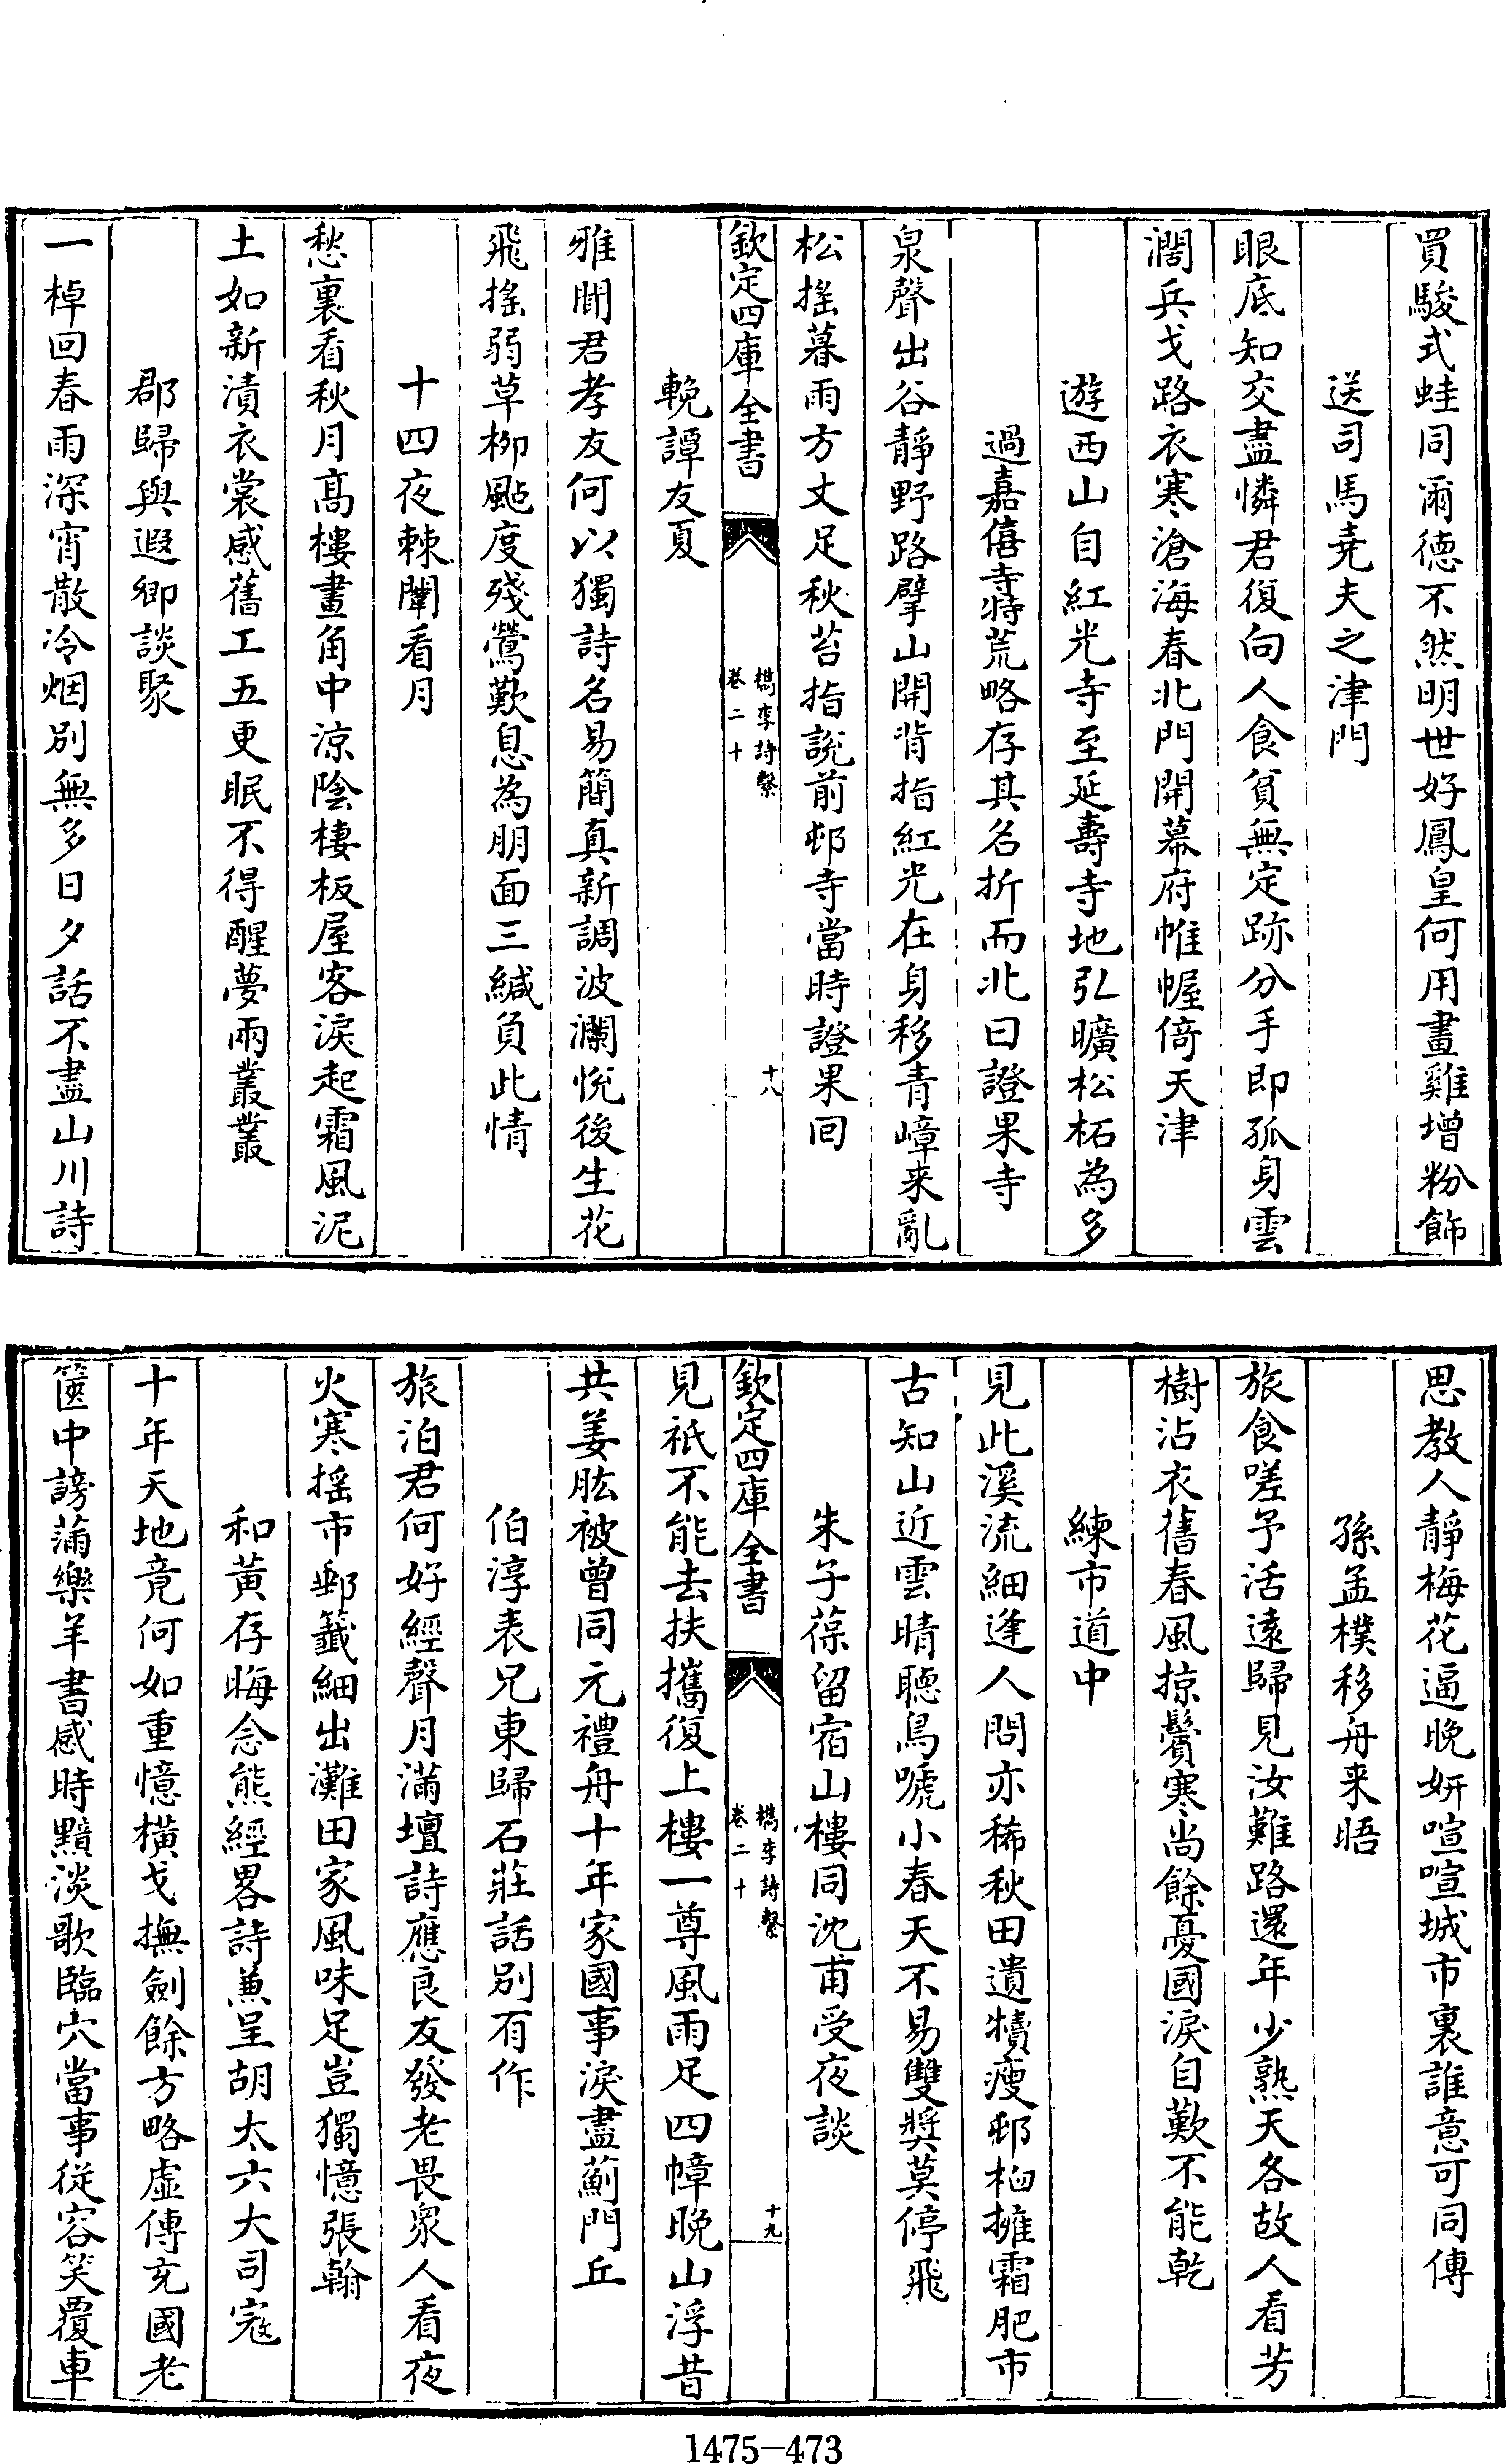 買駿式蛙同爾德不然明世好鳳皇何用畫雞增粉飾
送司馬堯夫之津門
眼底知交盡憐君復向人食貧無定跡分手即孤身雲
濶兵戈路衣寒滄海春北門開幕府帷幄倚天津
遊西山自紅光寺至延壽寺寺地弘曠松柘為多
過嘉僖寺特荒略存其名折而北曰證果寺
泉聲出谷靜野路擘山開背指紅光在身移青嶂来亂
松搖暮雨方丈足秋苔指説前邨寺當時證果回
欽定四庫全書
檇李詩繫
卷二十
十八
輓譚友夏
雅聞君孝友何以獨詩名易簡真新調波瀾悅後生花
飛搖弱草柳颭度殘鶯歎息為朋面三緘負此情
十四夜棘闈看月
愁裏看秋月髙樓畫角中涼陰棲板屋客淚起霜風泥
土如新漬衣裳感舊工五更眠不得醒夢兩叢叢
郡歸與遐卿談聚
一棹回春雨深宵散冷烟別無多日夕話不盡山川詩
思教人靜梅花逼晚妍喧喧城市裏誰意可同傳
孫孟樸移舟来晤
旅食嗟予活遠歸見汝難路還年少熟天各故人看芳
樹沾衣舊春風掠鬢寒尚餘憂國淚自歎不能乾
練市道中
見此溪流細逢人問亦稀秋田遺犢瘦邨桕擁霜肥市
古知山近雲晴聽鳥嗁小春天不易雙槳莫停飛
朱子葆留宿山樓同沈甫受夜談
欽定四庫全書
檇李詩繫
卷二十
十九
見祇不能去扶攜復上樓一尊風雨足四幛晚山浮昔
共姜肱被曾同元禮舟十年家國事淚盡薊門丘
伯淳表兄東歸石莊話別有作
旅泊君何好經聲月滿壇詩應良友發老畏衆人看夜
火寒搖市郵籤細出灘田家風味足豈獨憶張翰
和黃存晦念熊經畧詩兼呈胡太六大司寇
十年天地竟何如重憶橫戈撫劍餘方略虛傳充國老
篋中謗滿樂羊書感時黯淡歌臨穴當事従容笑覆車
1475－473